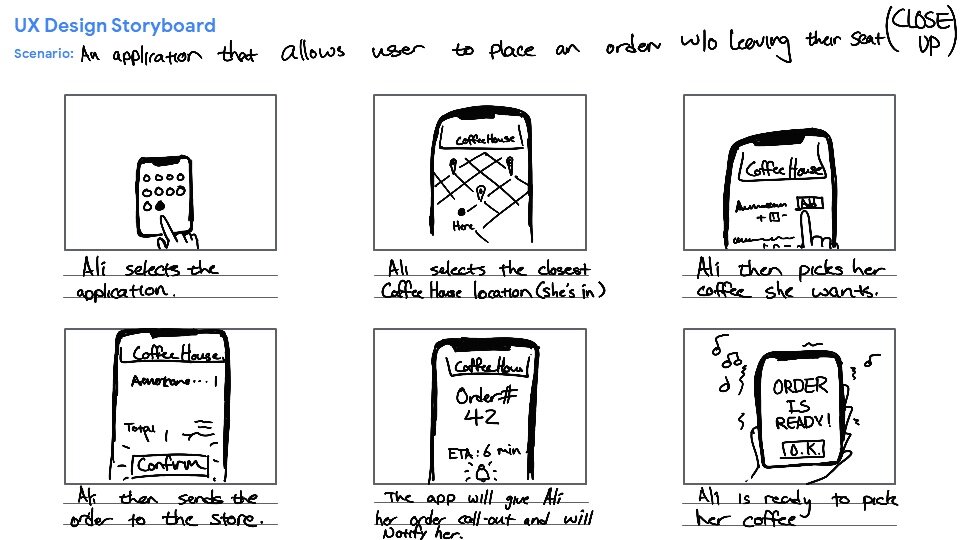 UX Design Storyboard
Scenario: An application that allows user to place an order w/o leaving their seat (CLOSE UP)
Coffee House
Here
Coffee House
Add
+ 1 -
Ali selects the
application.
Ali selects the closest
Coffee House location (she's in)
Ali then picks her
coffee she wants.
Coffee House
1
Total
Confirm
Coffee Hous
Order#
42
ETA: 6 min
ORDER
IS
READY!
O.K.
Ali then sends the
order to the store.
The app will give Ali
her order call-out and will
Notify her.
Ali is ready to pick
her coffee